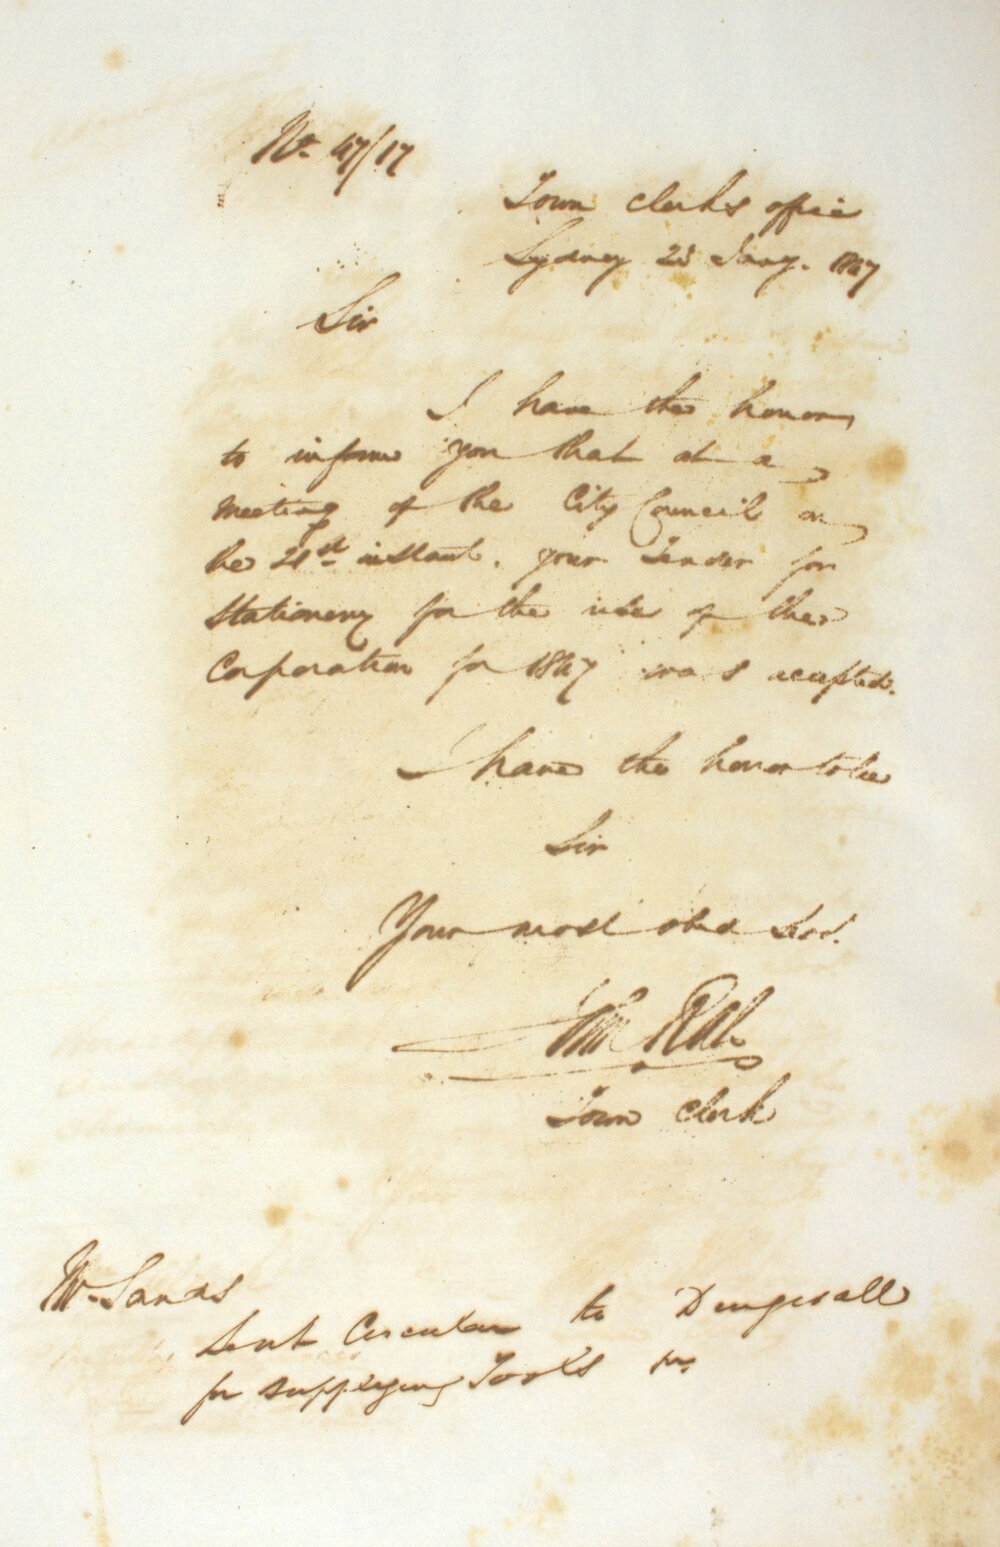 No. 47/17
Town Clerks office
Sydney 25 Jany. 1847
Sir
I have the honor
to inform you that at a
meeting of the City Council on
the 21st instant. your Tender for
Stationery for the use of the
Corporation for 1847 was accepted.
I have the honor to be
Sir
Your most obed Ser.
Town Clerk
Mr. Sands
Sent Circular to Dungevall
for supplying Tools